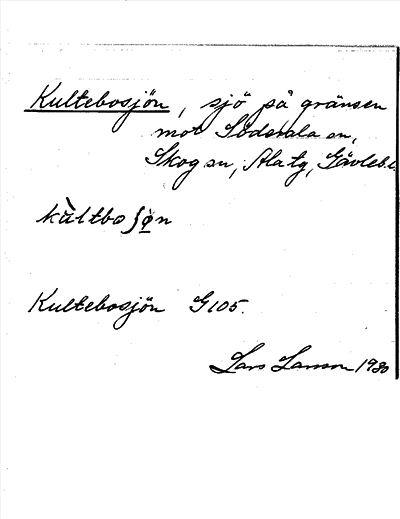 Kultebosjön, sjö på gränsen
mot Söderala sn,
Skog sn, Ala tg, Gävleb.l.
kùltbo ʃø̣̀n
Kultebosjön G105.
Lars Larsson 1930